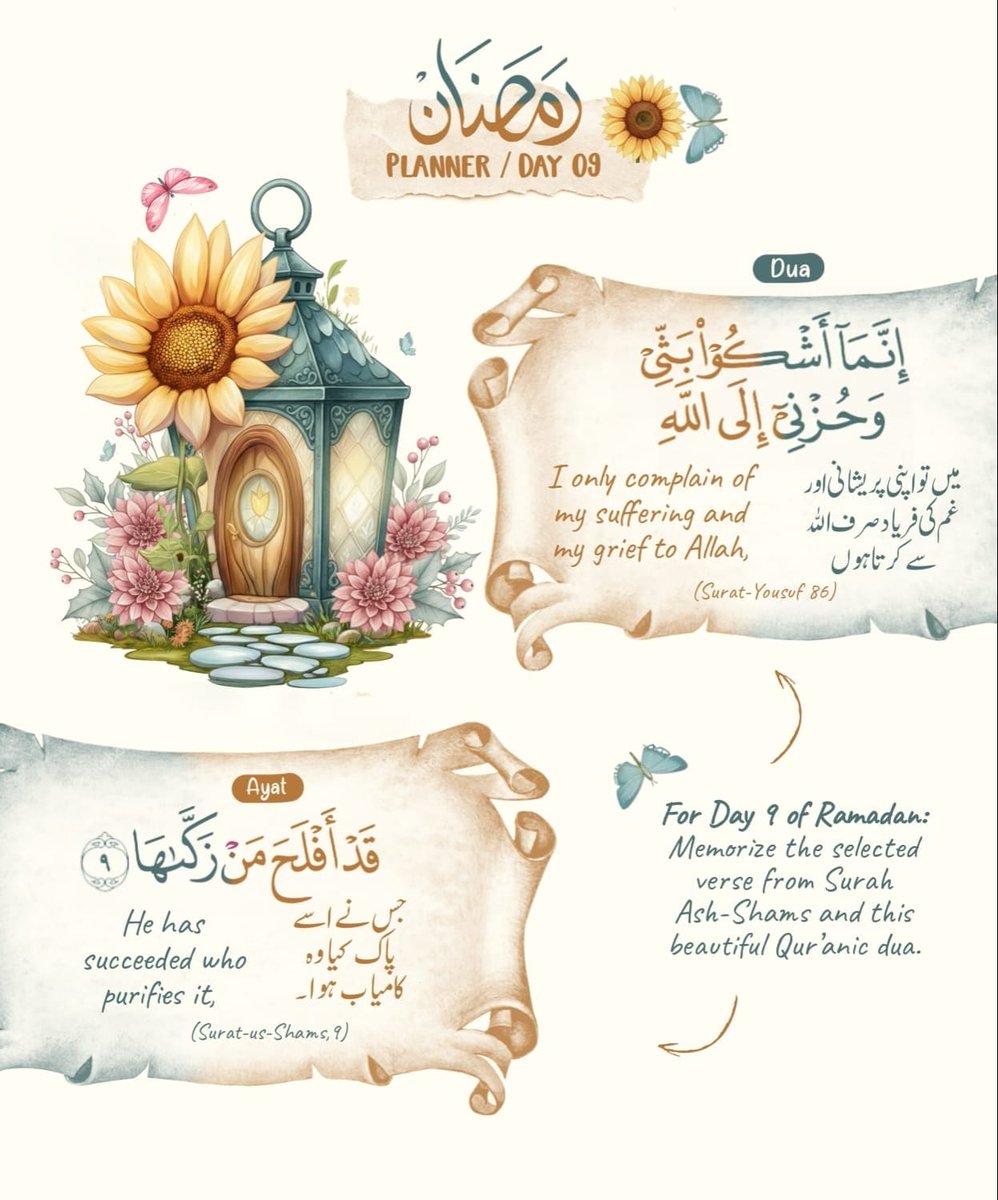 رمضان
PLANNER / DAY 09
Dua
إِنَّمَآ أَشْكُوْا بَثِّيْ
وَحُزْنِيْٓ إِلَى اللّٰهِ
I only complain of
my suffering and
my grief to Allah,
میں تو اپنی پریشانی اور
غم کی فریاد صرف اللہ
سے کرتا ہوں
(Surat-Yousuf 86)
Ayat
قَدْ أَفْلَحَ مَنْ زَكّٰىهَا ۹
He has
succeeded who
purifies it,
جس نے اسے
پاک کیا وہ
کامیاب ہوا۔
(Surat-us-Shams,9)
For Day 9 of Ramadan:
Memorize the selected
verse from Surah
Ash-Shams and this
beautiful Qur'anic dua.